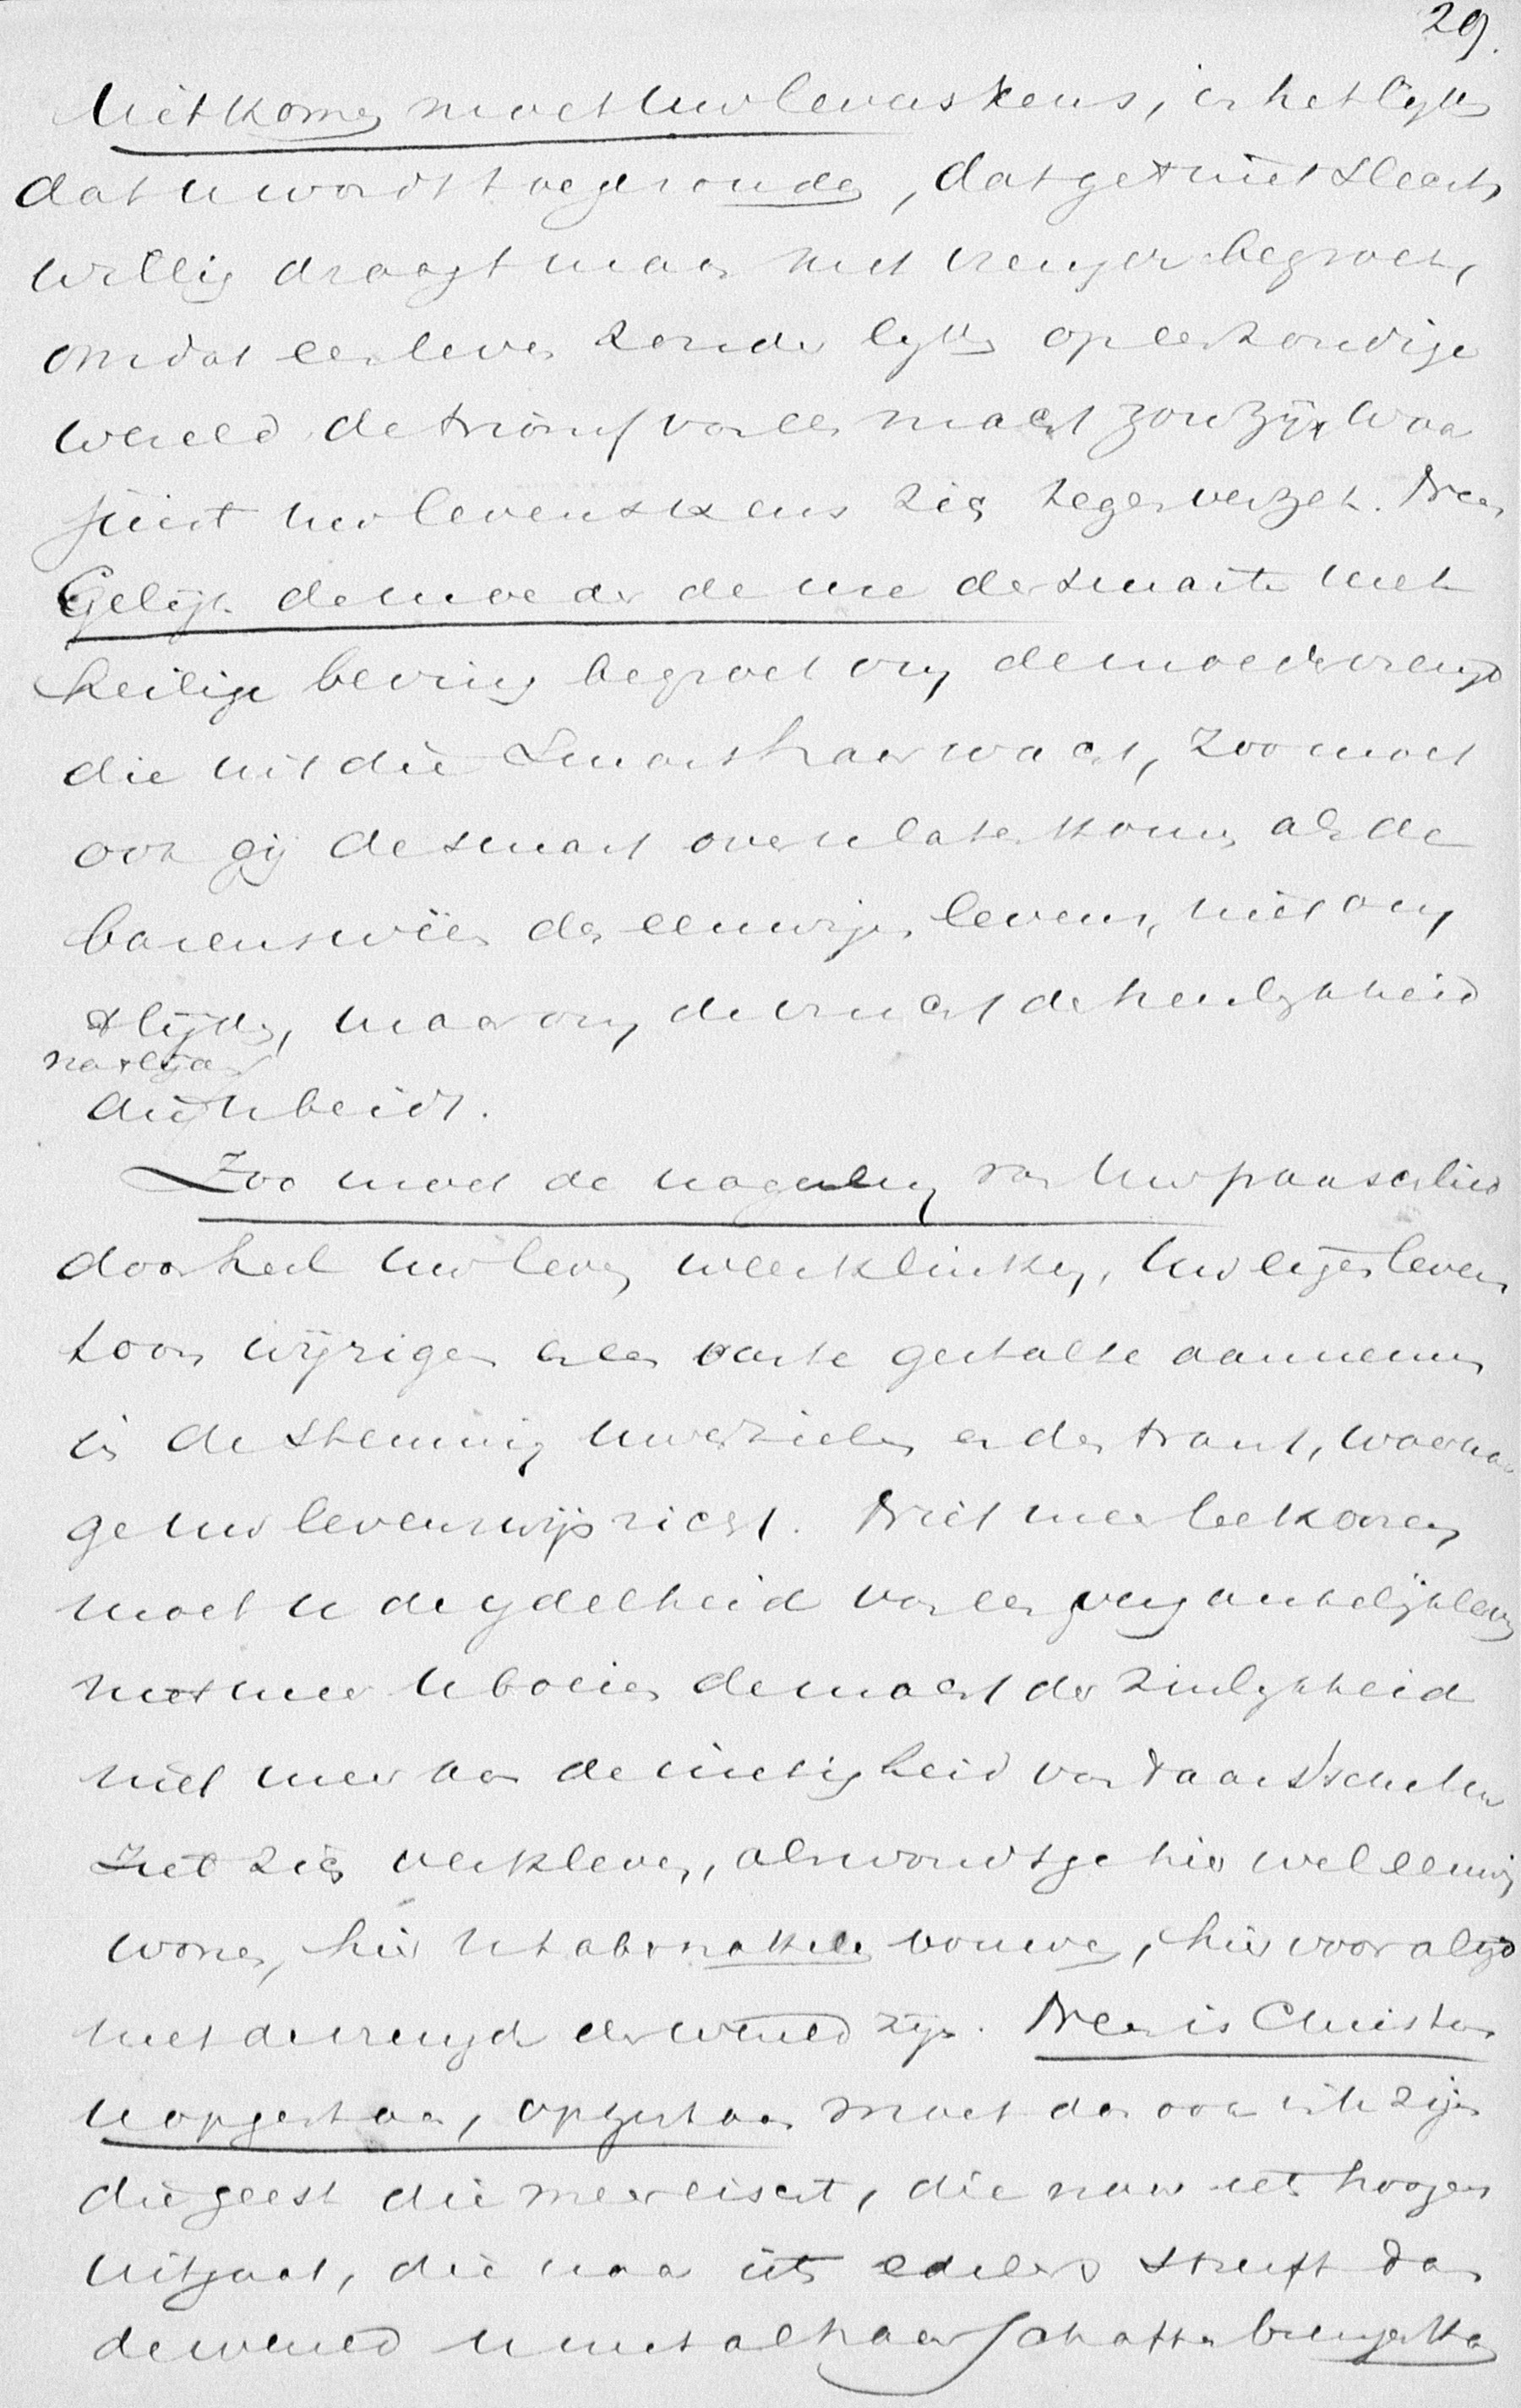 29.
Uitkomen moet uw levenskeus, in het lijden
dat u wordt toegezonden, dat ge niet slechts
willig draagt maar met vreugde begroet,
omdat een leven zonder lijden op een zondige
wereld de triomf van een macht zou zijn waar
juist uw levenskeus zich tegen verzet. Neen
Gelijk de moeder de ure der smarte met
heilige beving begroet om de moedervreugd
die uit die smart haar wacht, zoo moet
ook gij de smart over u laten komen als de
barensweën des eeuwigen levens, niet om
't lijden, maar om de vrucht der heerlijkheid
na 't lijden
die u beidt.
Zoo moet de nagalm van Uw paaschlied
door heel uw leven weerklinken, Uw eigen levens
toon wijzigen en een vaste gestalte aannemen
in de stemming uwer zielen en den trant, waarnaar
ge uw levenswijs richt. Niet meer bekoren
moet u de ydelheid van een vergankelijk leven
niet meer u boeien de macht der zinlykheid
niet meer aan de nietigheid van 't aardsche uw
ziel zich verkleven, als wondt ge hier wel eeuwig
wonen, hier Uw tabernakelen bouwen, hier voor altijd
met de vreugd der wereld zijn. Neen is Christus
u opgestaan, opgestaan moet dan ook in u zijn
die geest die meer eischt, die naar iets hoogers
uitgaat, die naar iets edelers streeft dan
de wereld u met al haar schatten brengen kan